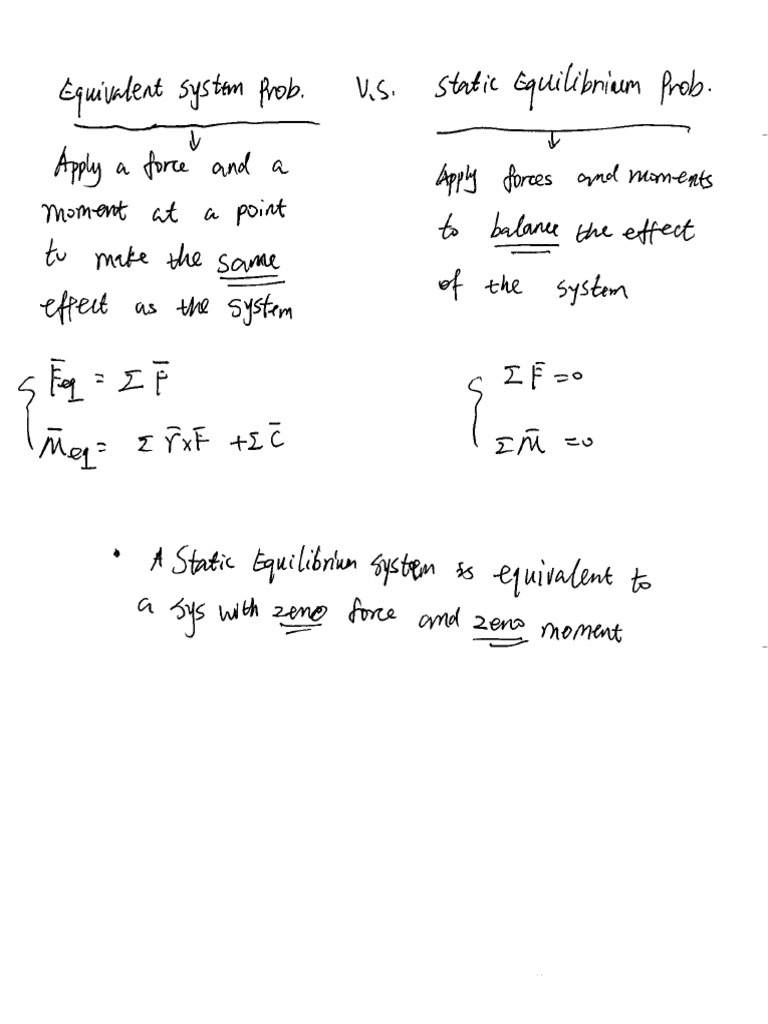 Equivalent System Prob. V.S. Static Equilibrium Prob.
Apply a force and a
moment at a point
to make the same
effect as the system
Apply forces and moments
to balance the effect
of the system
F̄eq = Σ F̄
M̄eq = Σ r̄×F̄ + Σ C̄
Σ F̄ = 0
Σ M̄ = 0
• A Static Equilibrium system is equivalent to
a sys with zero force and zero moment